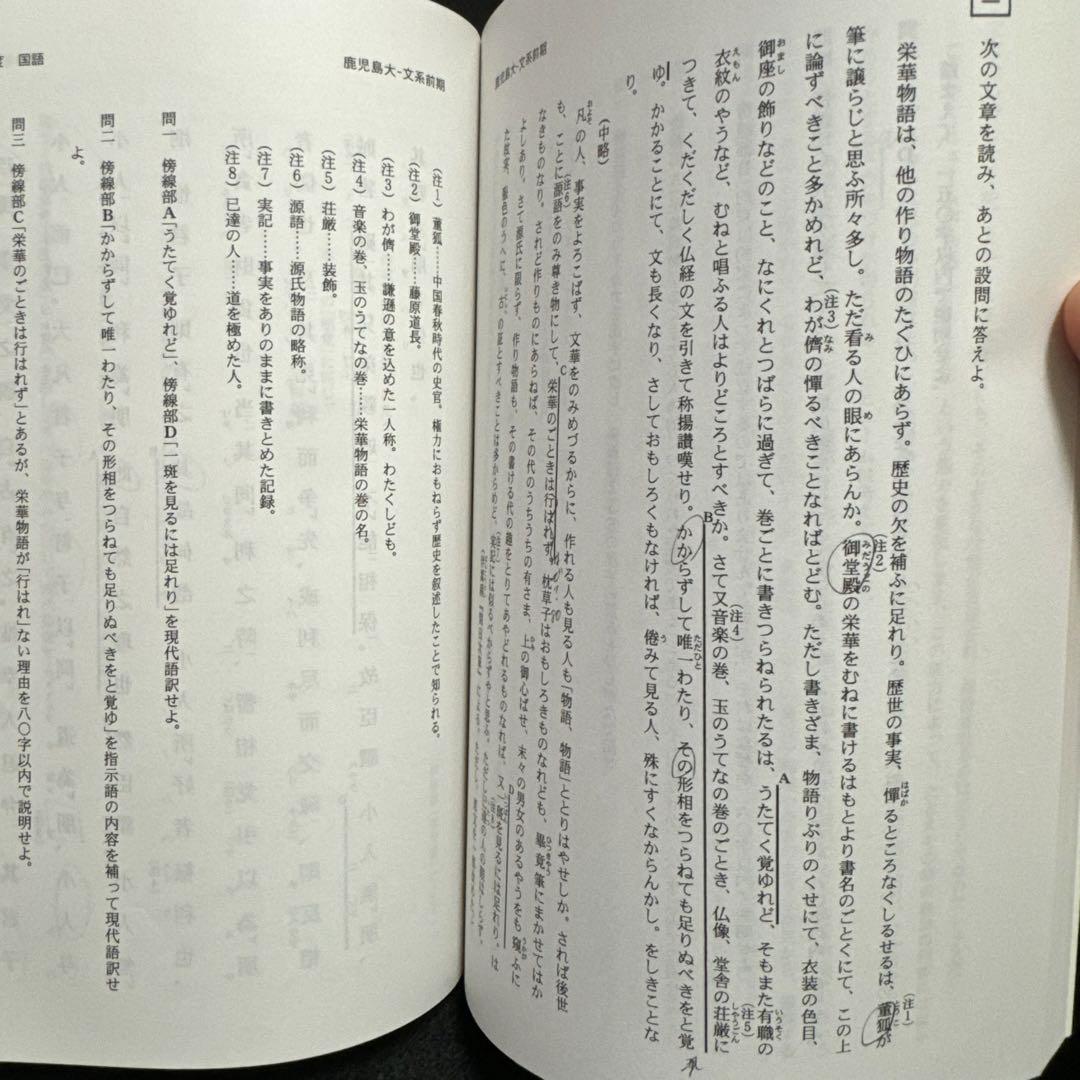 鹿児島大-文系前期
次の文章を読み、あとの設問に答えよ。
栄華物語は、他の作り物語のたぐひにあらず。歴史の欠を補ふに足れり。歴世の事実、憚るところなくしるせるは、董狐が
筆に譲らじと思ふ所々多し。ただ看る人の眼にあらんか。御堂殿の栄華をむねに書けるはもとより書名のごとくにて、この上
に論ずべきこと多かめれど、わが儕の憚るべきことなればとどむ。ただし書きざま、物語りぶりのくせにて、衣装の色目、
御座の飾りなどのこと、なにくれとつばらに過ぎて、巻ごとに書きつらねられたるは、うたてく覚ゆれど、そもまた有職の
衣紋のやうなど、むねと唱ふる人はよりどころとすべきか。さて又音楽の巻、玉のうてなの巻のごとき、仏像、堂舎の荘厳に
つきて、くだくだしく仏経の文を引きて称揚讃嘆せり。かからずして唯一わたり、その形相をつらねても足りぬべきをと覚
ゆ。かかることにて、文も長くなり、さしておもしろくもなければ、倦みて見る人、殊にすくなからんかし。をしきことな
り。
(中略)
凡の人、事実をよろこばず、文華をのみめづるからに、作れる人も見る人も「物語、物語」ととりはやせしか。されば後世
も、ことに源語をのみ尊き物にして、栄華のごときは行はれず。枕草子はおもしろきものなれども、畢竟筆にまかせてはか
なきものなり。されど作りものにあらねば、その代のうちうちの有さま、上の御心ばせ、末々の男女のあるやうをも窺ふに
よしあり。さて源氏に限らず、作り物語も、その書ける代の趣をとりてあやどれるものなれば、又一斑を見るには足れり。は
(注1) 董狐……中国春秋時代の史官。権力におもねらず歴史を叙述したことで知られる。
(注2) 御堂殿……藤原道長。
(注3) わが儕……謙遜の意を込めた一人称。わたくしども。
(注4) 音楽の巻、玉のうてなの巻……栄華物語の巻の名。
(注5) 荘厳……装飾。
(注6) 源語……源氏物語の略称。
(注7) 実記……事実をありのままに書きとめた記録。
(注8) 已達の人……道を極めた人。
問一 傍線部A「うたてく覚ゆれど」、傍線部D「一斑を見るには足れり」を現代語訳せよ。
問二 傍線部B「かからずして唯一わたり、その形相をつらねても足りぬべきをと覚ゆ」を指示語の内容を補って現代語訳せ
よ。
問三 傍線部C「栄華のごときは行はれず」とあるが、栄華物語が「行はれ」ない理由を八〇字以内で説明せよ。
鹿児島大-文系前期
国語